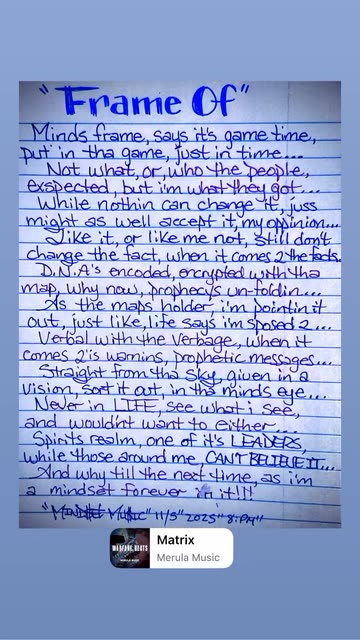 "Frame Of"
Minds frame, says it's game time,
put in tha game, just in time....
Not what, or, who the people,
exspected, but i'm what they got...
While nothin can change it, juss
might as well accept it, my oppinion...
Like it, or like me not, still don't
change the fact, when it comes 2 the facts.
D.N.A's encoded, encrypted with tha
map, why now, prophecy's un-foldin...
As the maps holder, i'm pointin it
out, just like, life says i'm sposed 2...
Verbal with the Verbage, when it
comes 2 is warnins, prophetic messages...
Straight from tha sky, given in a
vision, sort it out, in tha minds eye...
Never in LIFE, see what i see,
and wouldn't want to either...
Spirits realm, one of it's LEADERS,
while those around me CAN'T BELIEVE IT...
And why till the next time, as i'm
a mindset forever in it!!!
Music" 11/5" 2025" 8:PM"
WARFARE BEATS
Matrix
Merula Music